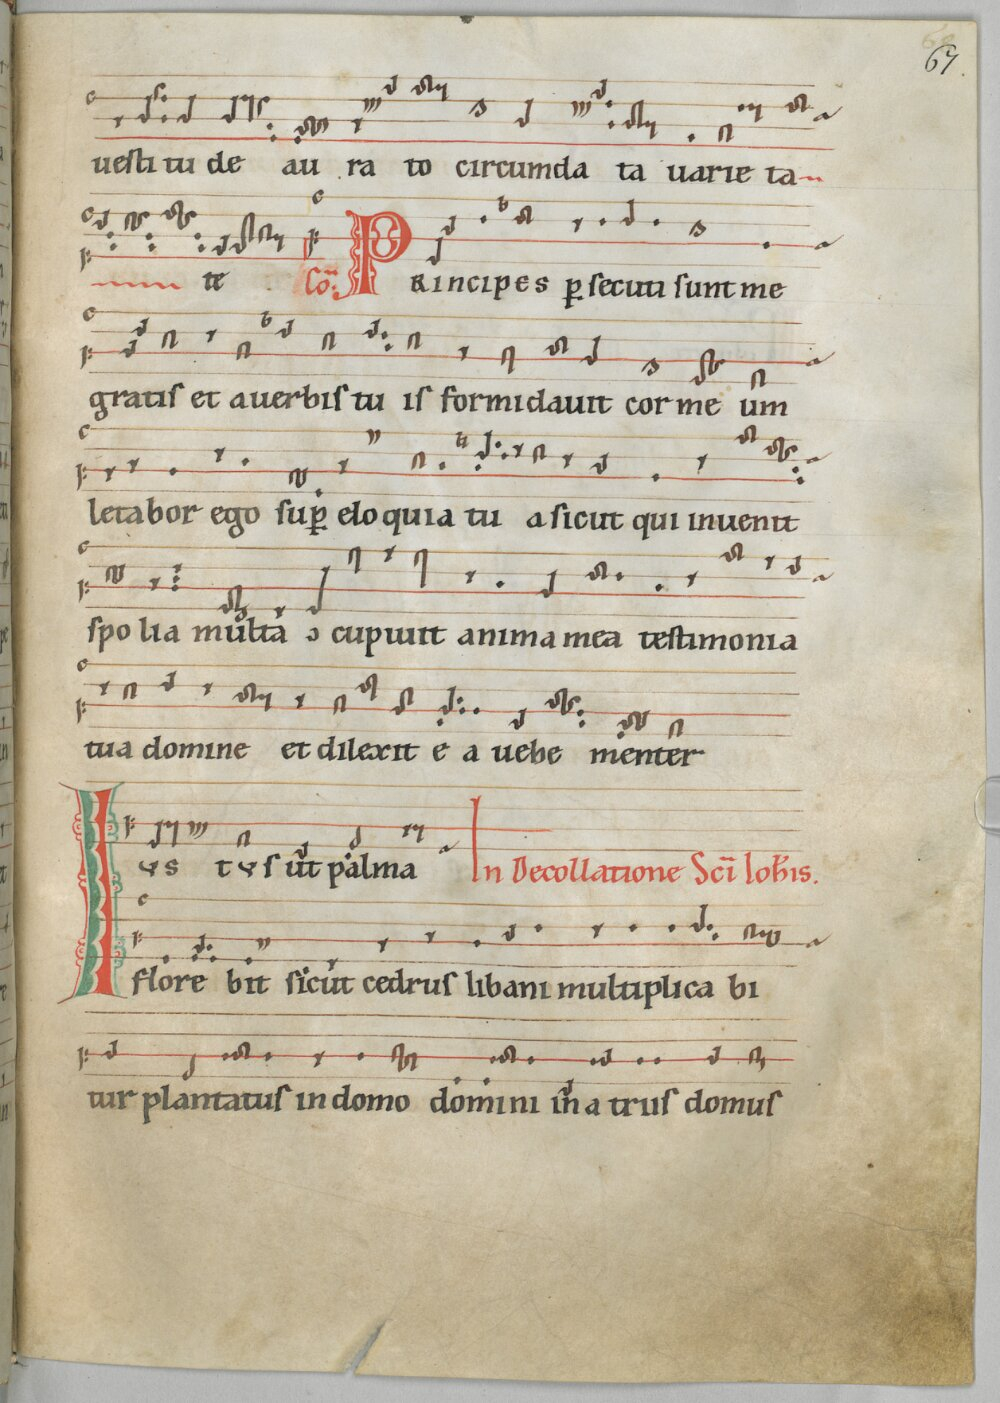 67
uestitu de au ra to circumda ta uarie ta
te Co. PRincipes p secuti sunt me
gratis et a uerbis tu is formidauit cor me um
letabor ego sup eloquia tu a sicut qui inuenit
spolia multa ɔcupiuit anima mea testimonia
tua domine et dilexit e a uehe menter
Ius tus ut palma In Decollatione Sci Iohis.
flore bit sicut cedrus libani multiplica bi
tur plantatus in domo domini in a triis domus